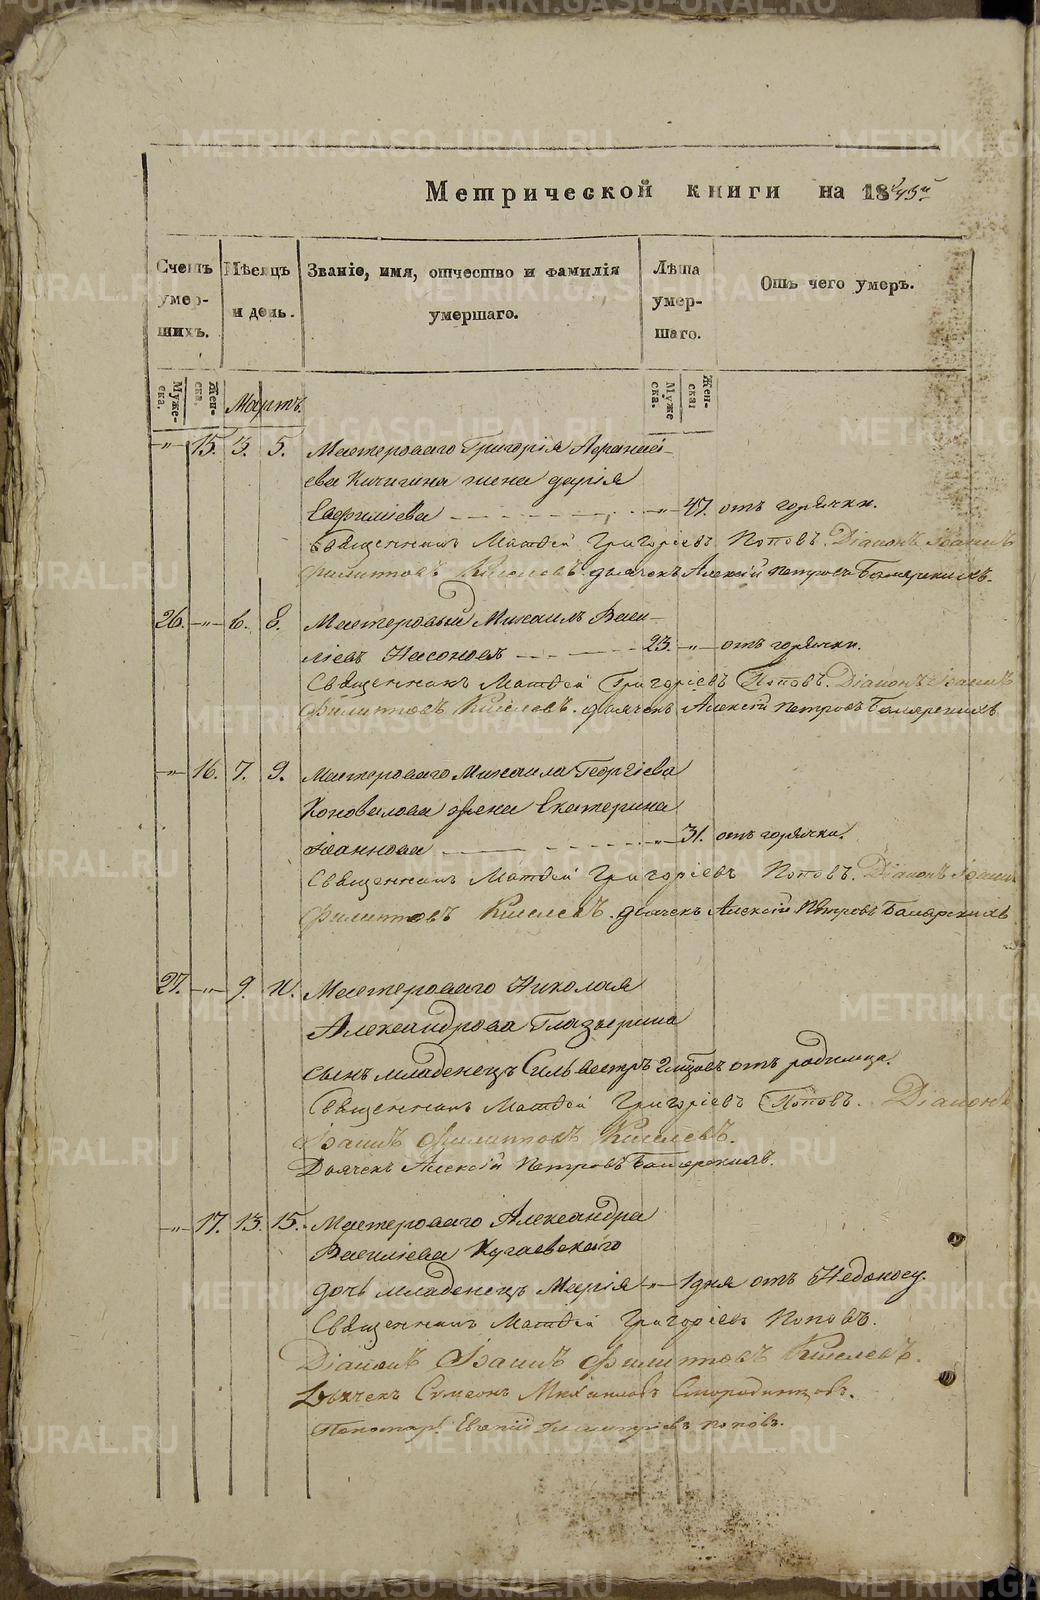 Метрической книги на 1845й
Счетъ умер- шихъ.
Мѣсяцъ и день.
Званіе, имя, отчество и фамилія умершаго.
Лѣта умер- шаго.
Отъ чего умеръ.
Муже- ска. Жен- ска. Мартъ. Муже ска. Жен- ска:
" 15. 3. 5. Мастероваго Григорія Афанасі-
ева Кичигина жена Дарія
" 47. отъ горячки.
Священникъ Матфей Григоріевъ Поповъ. Діаконъ Іоаннъ
Филипповъ Киселевъ. дьячекъ Алексій Петровъ Боярскихъ.
26. " 6. 8. Мастеровый Михаилъ Васи-
ліевъ Насоновъ 23. " отъ горячки.
Священникъ Матфей Григоріевъ Поповъ. Діаконъ Іоаннъ
Филипповъ Киселевъ. дьячекъ Алексій Петровъ Боярскихъ
" 16. 7. 9. Мастероваго Михаила Георгіева
Коновалова жена Екатерина
Іоаннова " 31. отъ горячки.
Священникъ Матфей Григоріевъ Поповъ. Діаконъ Іоаннъ
Филипповъ Киселевъ. дьячекъ Алексій Петровъ Боярскихъ
27. " 9. 11. Мастероваго Николая
Александрова Глазырина
сынъ младенецъ Сильвестръ 2 мцовъ отъ родимца.
Священникъ Матфей Григоріевъ Поповъ. Діаконъ
Іоаннъ Филипповъ Киселевъ.
Дьячекъ Алексій Петровъ Боярскихъ.
" 17. 13. 15. Мастероваго Александра
Василіева Кугаевскаго
дочь младенецъ Марія " 1 дня отъ Недоносу.
Священникъ Матфей Григоріевъ Поповъ.
Діаконъ Іоаннъ Филипповъ Киселевъ.
Дьячекъ Сумеонъ Михаиловъ Смородинцовъ.
Пономарь Евгеній Димитріевъ Поповъ.
METRIKI.GASO-URAL.RU